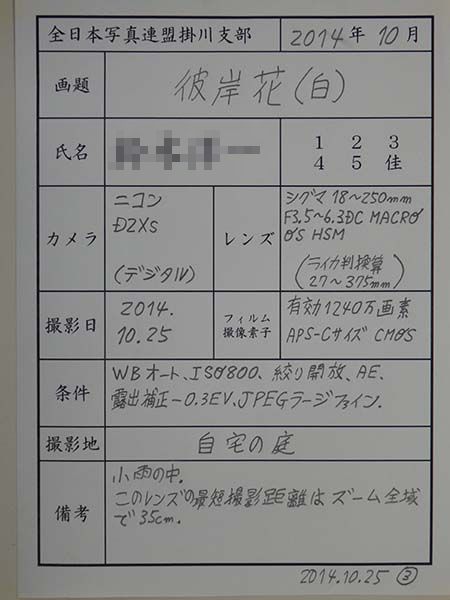 全日本写真連盟掛川支部 2014年10月
画題 彼岸花(白)
氏名 1 2 3
4 5 佳
カメラ ニコン
D2Xs
(デジタル)
レンズ シグマ 18~250mm
F3.5~6.3DC MACRO
OS HSM
(ライカ判換算
27~375mm)
撮影日 2014.
10.25
フィルム
撮像素子 有効1240万画素
APS-Cサイズ CMOS
条件 WBオート、ISO800、絞り開放、AE、
露出補正-0.3EV、JPEGラージファイン.
撮影地 自宅の庭
備考 小雨の中.
このレンズの最短撮影距離はズーム全域
で35cm.
2014.10.25 ③